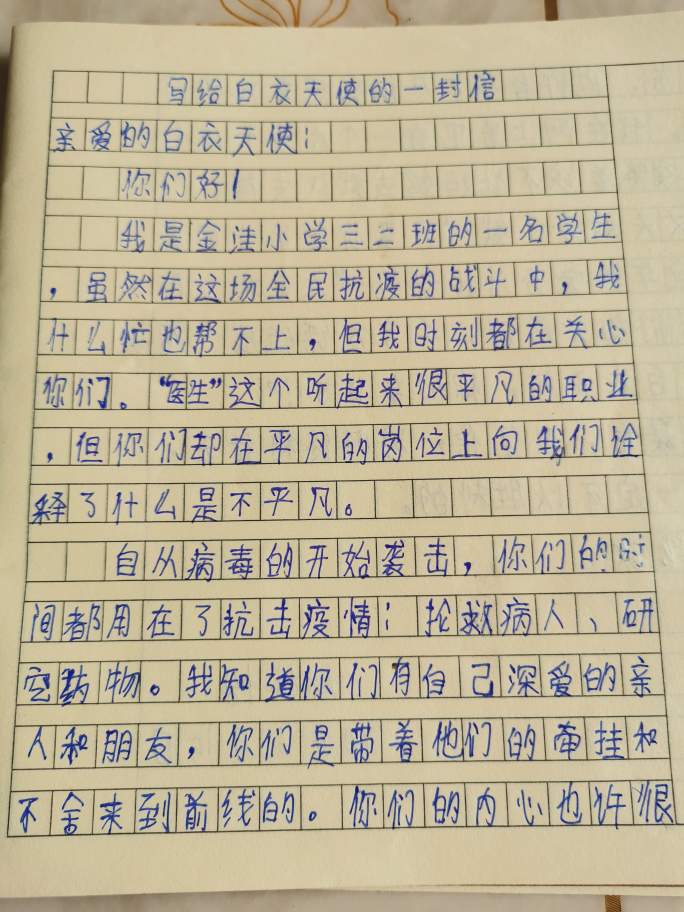 写给白衣天使的一封信
亲爱的白衣天使：
你们好！
我是金洼小学三二班的一名学生
，虽然在这场全民抗疫的战斗中，我
什么忙也帮不上，但我时刻都在关心
你们。“医生”这个听起来很平凡的职业
，但你们却在平凡的岗位上向我们诠
释了什么是不平凡。
自从病毒的开始袭击，你们的时
间都用在了抗击疫情；抢救病人、研
究药物。我知道你们有自己深爱的亲
人和朋友，你们是带着他们的牵挂和
不舍来到前线的。你们的内心也许很